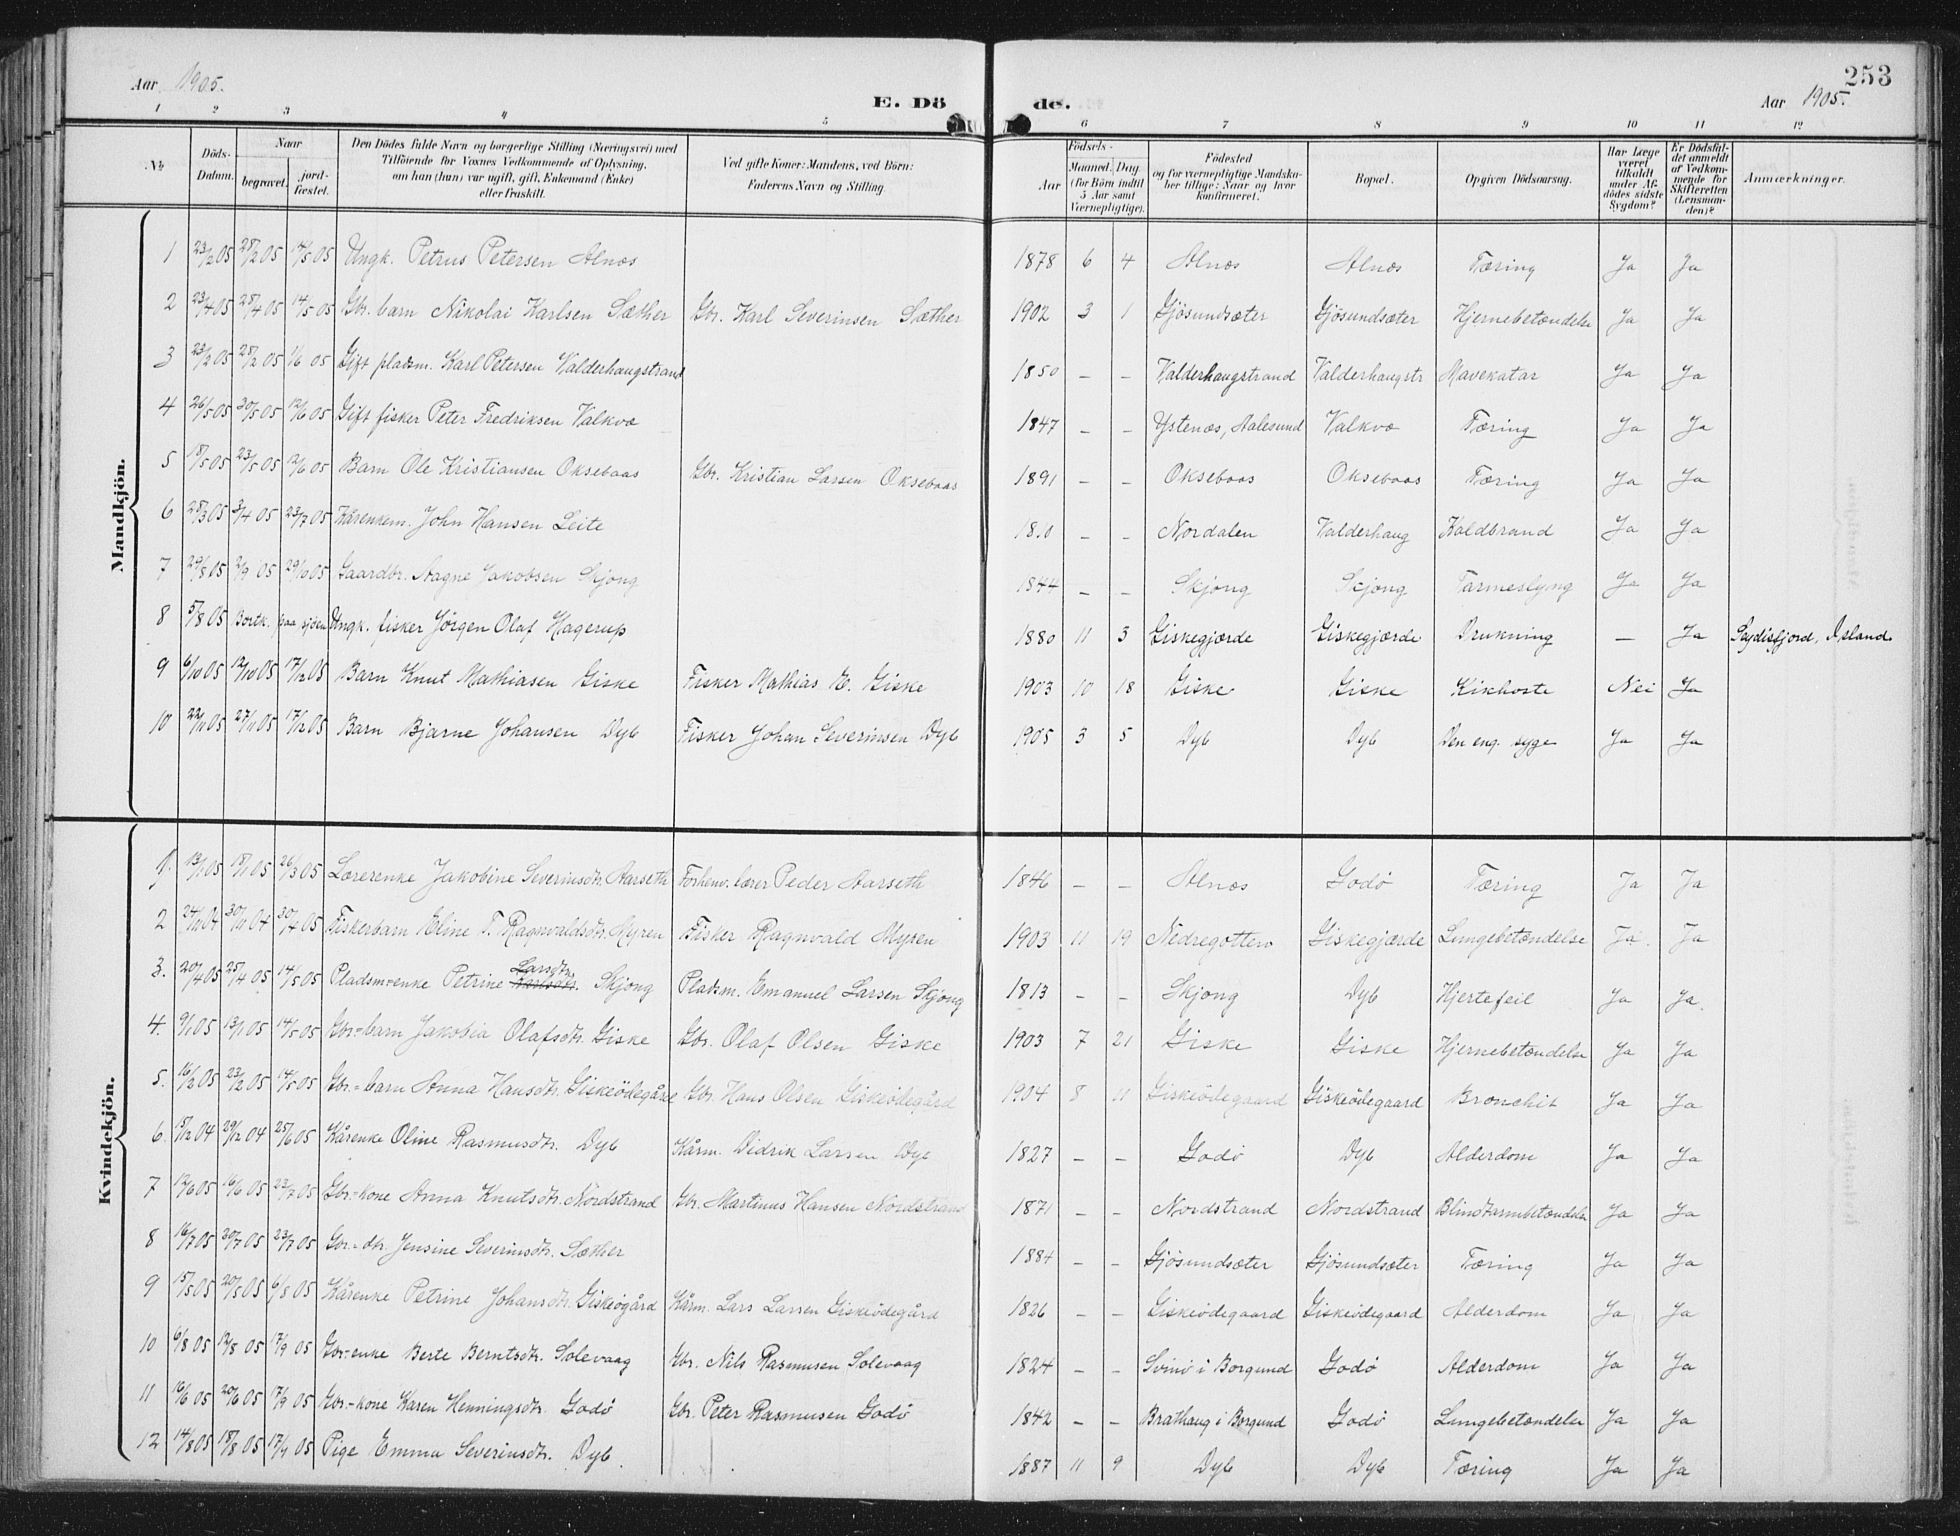 253
Aar 1905. E. Döde. Aar 1905.
1 2 3 4 5 6 7 8 9 10 11 12
No. Döds-Datum. Naar begravet. jordfæstet. Den Dödes fulde Navn og borgerlige Stilling (Næringsvei) med Tilföiende for Voxnes Vedkommende af Oplysning, om han (hun) var ugift, gift, Enkemand (Enke) eller fraskilt. Ved gifte Koner: Mandens, ved Börn: Faderens Navn og Stilling. Födsels- Aar Maaned. Dag (for Börn indtil 5 Aar samt Værnepligtige). Födested og for værnepligtige Mandskaber tillige: Naar og hvor konfirmeret. Bopæl. Opgiven Dödsaarsag. Har Læge været tilkaldt under Afdödes sidste Sygdom? Er Dödsfaldet anmeldt af Vedkommende for Skifteretten (Lensmanden)? Anmærkninger.
Mandkjön.
1 23/2 05 28/2 05 14/5 05 Ungk. Petrus Petersen Alnæs 1878 6 4 Alnæs Alnæs Tæring Ja Ja
2 23/4 05 28/4 05 14/5 05 Gbr. barn Nikolai Karlsen Sæther Gbr. Karl Severinsen Sæther 1902 3 1 Gjösundsæter Gjösundsæter Hjernebetændelse Ja Ja
3 23/2 05 28/2 05 1/6 05 Gift pladsm. Karl Petersen Valderhaugstrand 1850 – – Valderhaugstrand Valderhaugstr Mavekatar Ja Ja
4 26/5 05 30/5 05 12/6 05 Gift fisker Peter Fredriksen Valkvæ 1847 – – Ystenæs, Aalesund Valkvæ Tæring Ja Ja
5 18/5 05 23/5 05 12/6 05 Barn Ole Kristiansen Oksebaas Gbr. Kristian Larsen Oksebaas 1891 – – Oksebaas Oksebaas Tæring Ja Ja
6 28/3 05 3/4 05 23/7 05 Kårenkem. John Hansen Leite – – Nordalen Valderhaug Koldbrand Ja Ja
7 29/8 05 2/9 05 29/10 05 Gaardbr. Aagne Jakobsen Skjong 1844 – – Skjong Skjong Tarmeslyng Ja Ja
8 5/8 05 Bortk. paa sjöen Ungk. fisker Jørgen Olaf Hagerup 1880 11 3 Giskegjærde Giskegjærde Drukning – Ja Seydisfjord, Island.
9 6/10 05 12/10 05 17/12 05 Barn Knut Mathiasen Giske Fisker Mathias E. Giske 1903 10 18 Giske Giske Kikhoste Nei Ja
10 22/11 05 27/11 05 17/12 05 Barn Bjarne Johansen Dyb Fisker Johan Severinsen Dyb 1905 3 5 Dyb Dyb Den eng. syge Ja Ja
Kvindekjön.
1. 13/1 05 18/1 05 26/3 05 Lærerenke Jakobine Severinsdtr. Aarseth Forhenv. lærer Peder Aarseth 1846 – – Alnæs Godø Tæring Ja Ja
2 24/11 04 30/11 04 30/4 05 Fiskerbarn Eline T. Ragnvaldsdtr. Myren Fisker Ragnvald Myren 1903 11 19 Nedregotten Giskegjærde Lungebetændelse Ja. Ja
3. 20/4 05 25/4 05 14/5 05 Pladsm-enke Petrine Larsdtr. Skjong Pladsm. Emanuel Larsen Skjong 1813 – – Skjong Dyb Hjertefeil Ja Ja.
4. 9/1 05 13/1 05 14/5 05 Gbr-barn Jakobia Olafsdtr. Giske Gbr. Olaf Olsen Giske 1903 7 21 Giske Giske Hjernebetændelse Ja Ja
5. 16/2 05 23/2 05 14/5 05 Gbr-barn Anna Hansdtr. Giskeödegård Gbr. Hans Olsen Giskeödegård 1904 8 11 Giskeödegaard Giskeödegaard Bronchit Ja Ja
6. 15/12 04 29/12 04 25/6 05 Kårenke Oline Rasmusdtr. Dyb Kårm. Didrik Larsen Dyb 1827 – – Godö Dyb Alderdom Ja Ja
7 12/6 05 16/6 05 23/7 05 Gbr-kone Anna Knutsdtr. Nordstrand Gbr. Martinus Hansen Nordstrand 1871 – – Nordstrand Nordstrand Blindtarmbetændelse Ja Ja
8 16/7 05 20/7 05 23/7 05 Gbr-dtr. Jensine Severinsdtr. Sæther 1884 – – Gjösundsæter Gjösundsæter Tæring Ja Ja
9 15/5 05 20/5 05 6/8 05 Kårenke Petrine Johansdtr. Giskeögård Kårm. Lars Larsen Giskeödegård 1826 – – Giskeödegaard Giskeödegaard Alderdom Ja Ja
10 6/8 05 12/8 05 17/9 05 Gbr-enke Berte Berntsdtr. Solevaag Gbr. Nils Rasmusen Solevaag 1824 – – Svinö i Borgund Godö Alderdom Ja Ja
11 16/6 05 20/6 05 17/9 05 Gbr-kone Karen Henningsdtr. Godö Gbr. Peter Rasmusen Godö 1842 – – Brathaug i Borgund Godö Lungebetændelse Ja Ja
12 14/8 05 18/8 05 17/9 05 Pige Emma Severinsdtr. Dyb. 1887 11 9 Dyb Dyb Tæring Ja Ja